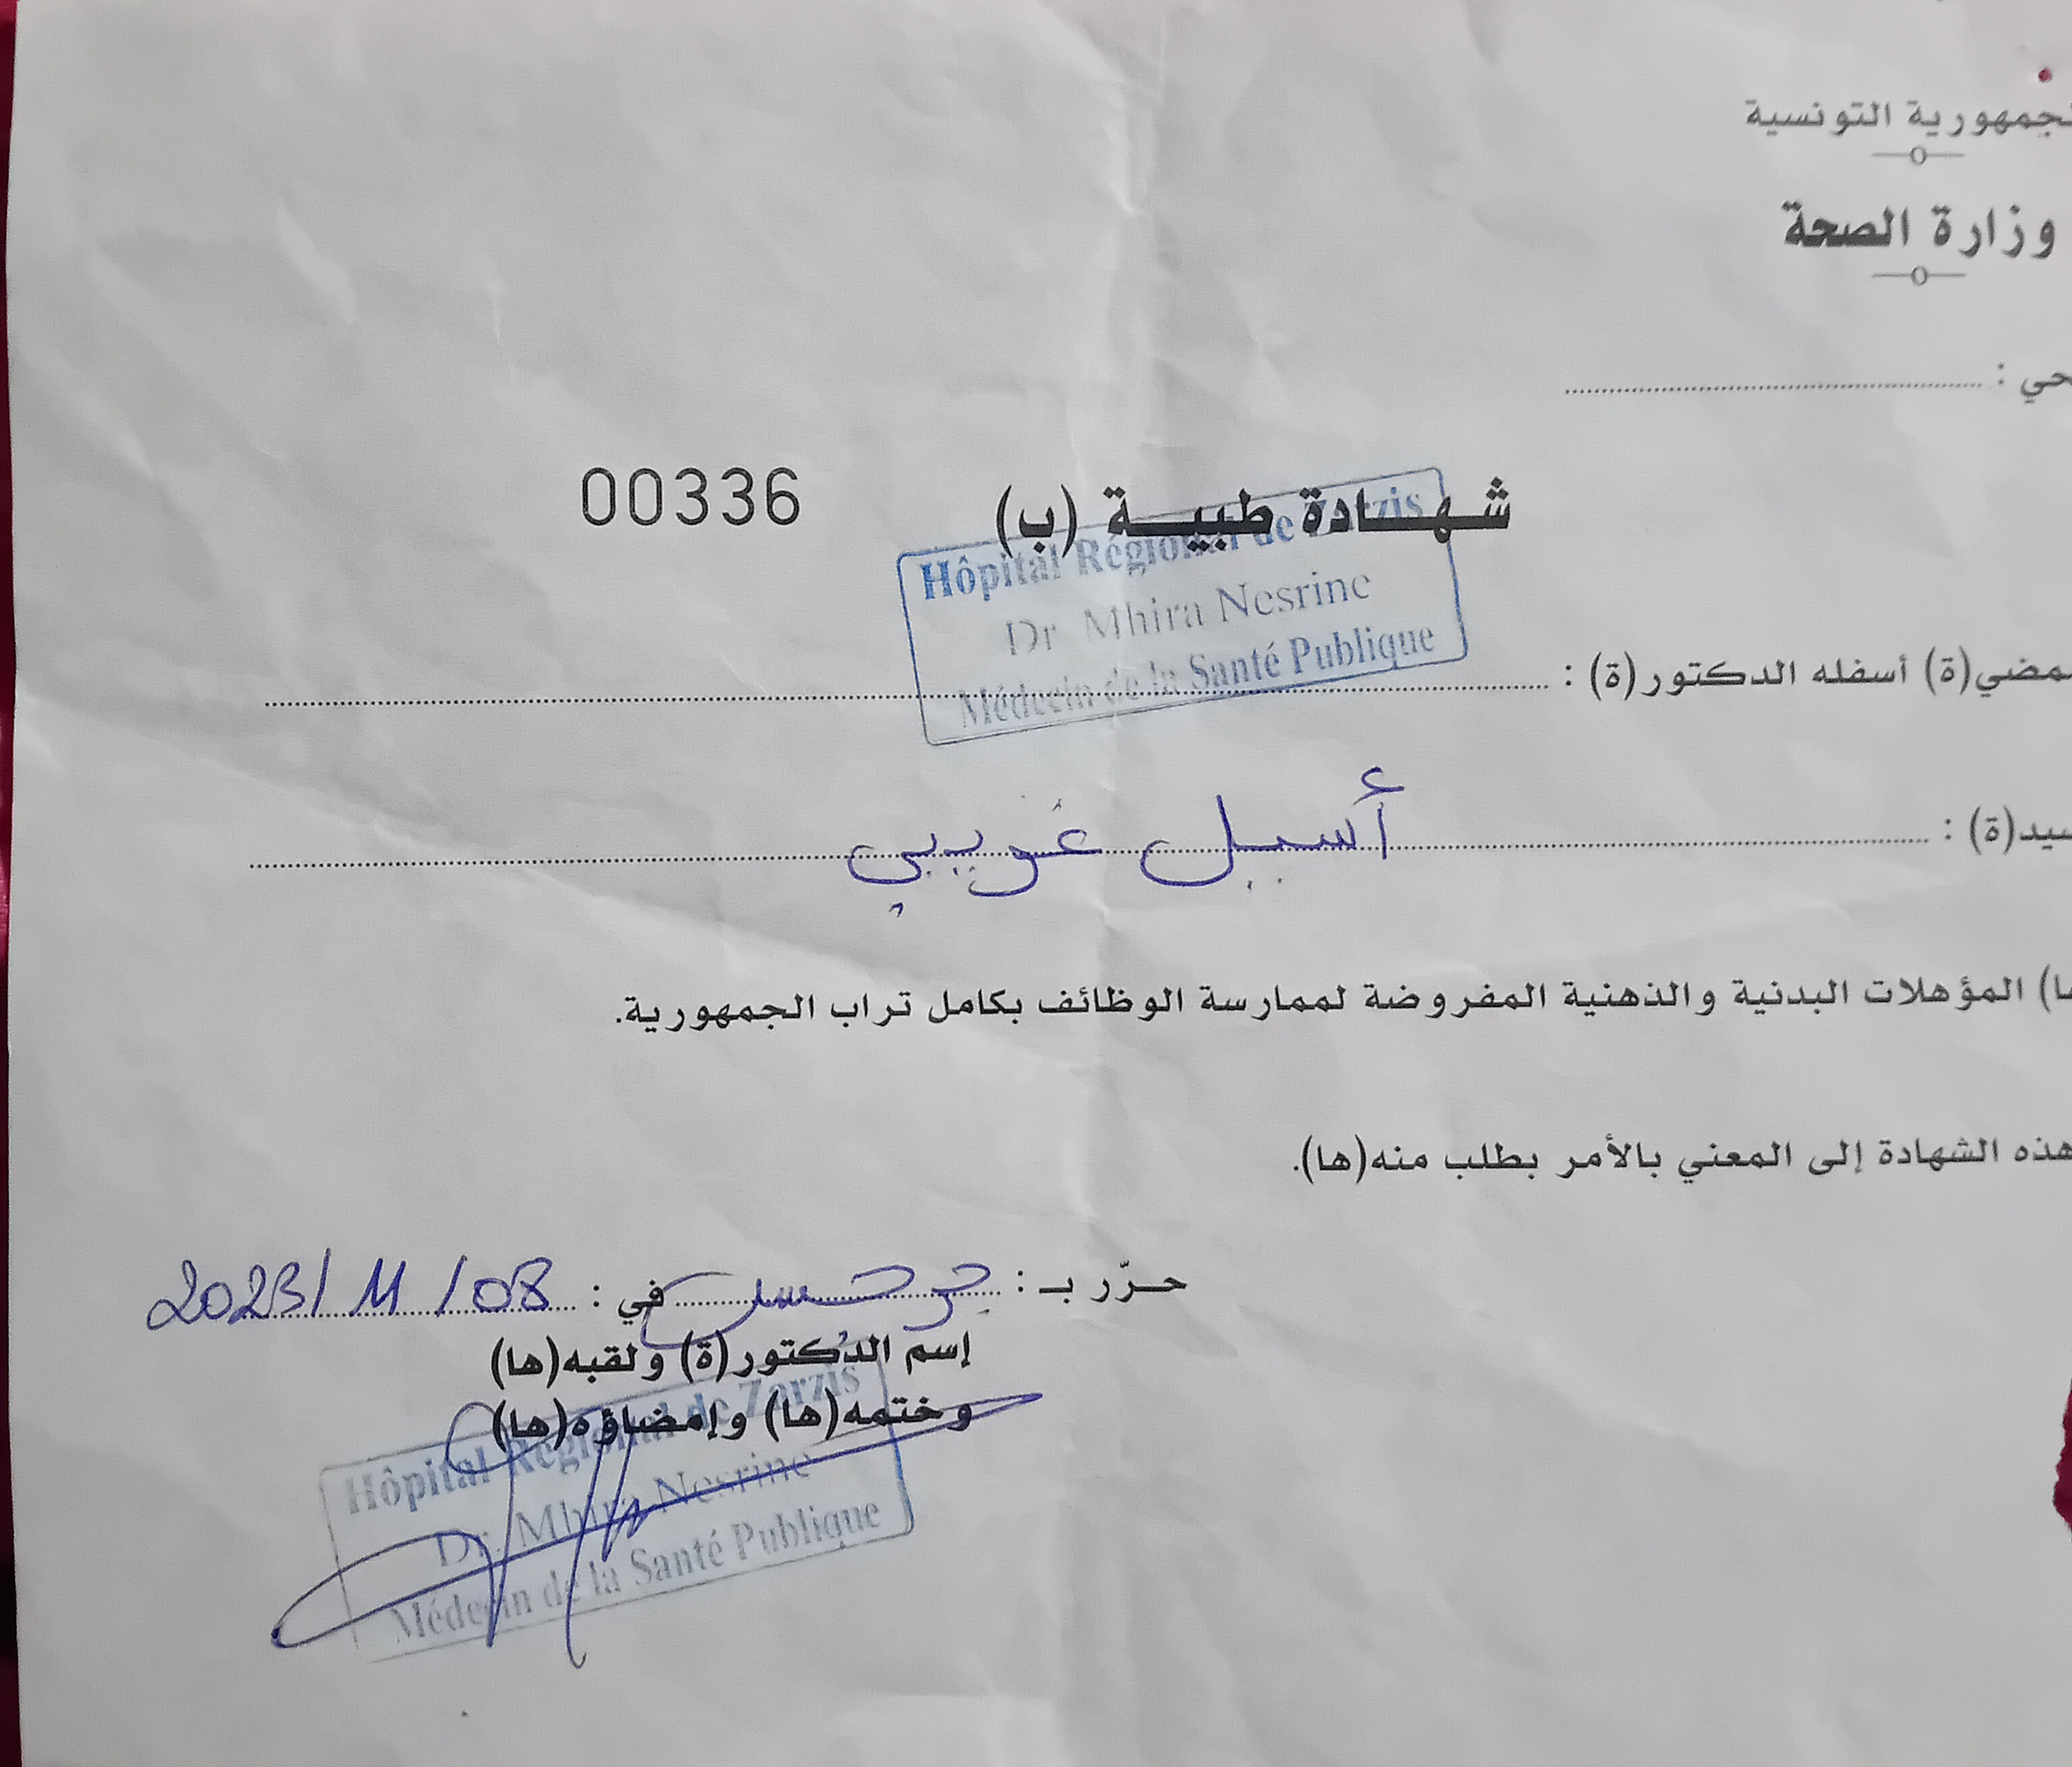 لجمهورية التونسية
وزارة الصحة
حي :
00336
شهادة طبية (ب)
Hôpital Régional de Zarzis
Dr Mhira Nesrine
Médecin de la Santé Publique
مضي(ة) أسفله الدكتور(ة) :
سيد(ة) : أسيل
ها) المؤهلات البدنية والذهنية المفروضة لممارسة الوظائف بكامل تراب الجمهورية.
هذه الشهادة إلى المعني بالأمر بطلب منه(ها).
حرّر بـ : جرجيس في : 2023/11/08
إسم الدكتور(ة) ولقبه(ها)
وختمه(ها) وإمضاؤه(ها)
Hôpital Régional de Zarzis
Dr. Mhira Nesrine
Médecin de la Santé Publique